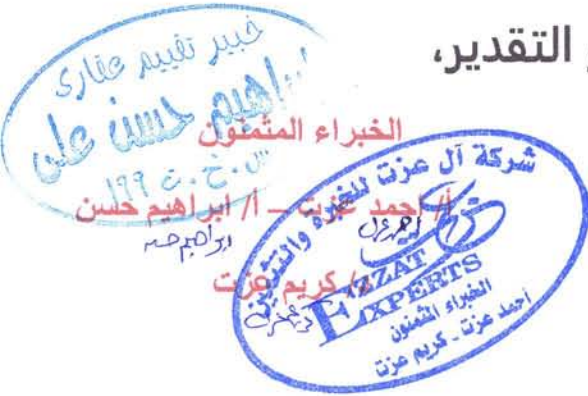 التقدير،
خبير تقييم عقارى
ابراهيم حسن على
س.خ.ت ١٩٩
الخبراء المثمنون
أ/ احمد عزت – أ/ ابراهيم حسن
ابراهيم حسن
د/ كريم عزت
شركة آل عزت للخبره والتثمين
EZZAT
EXPERTS
الخبراء المثمنون
احمد عزت - كريم عزت